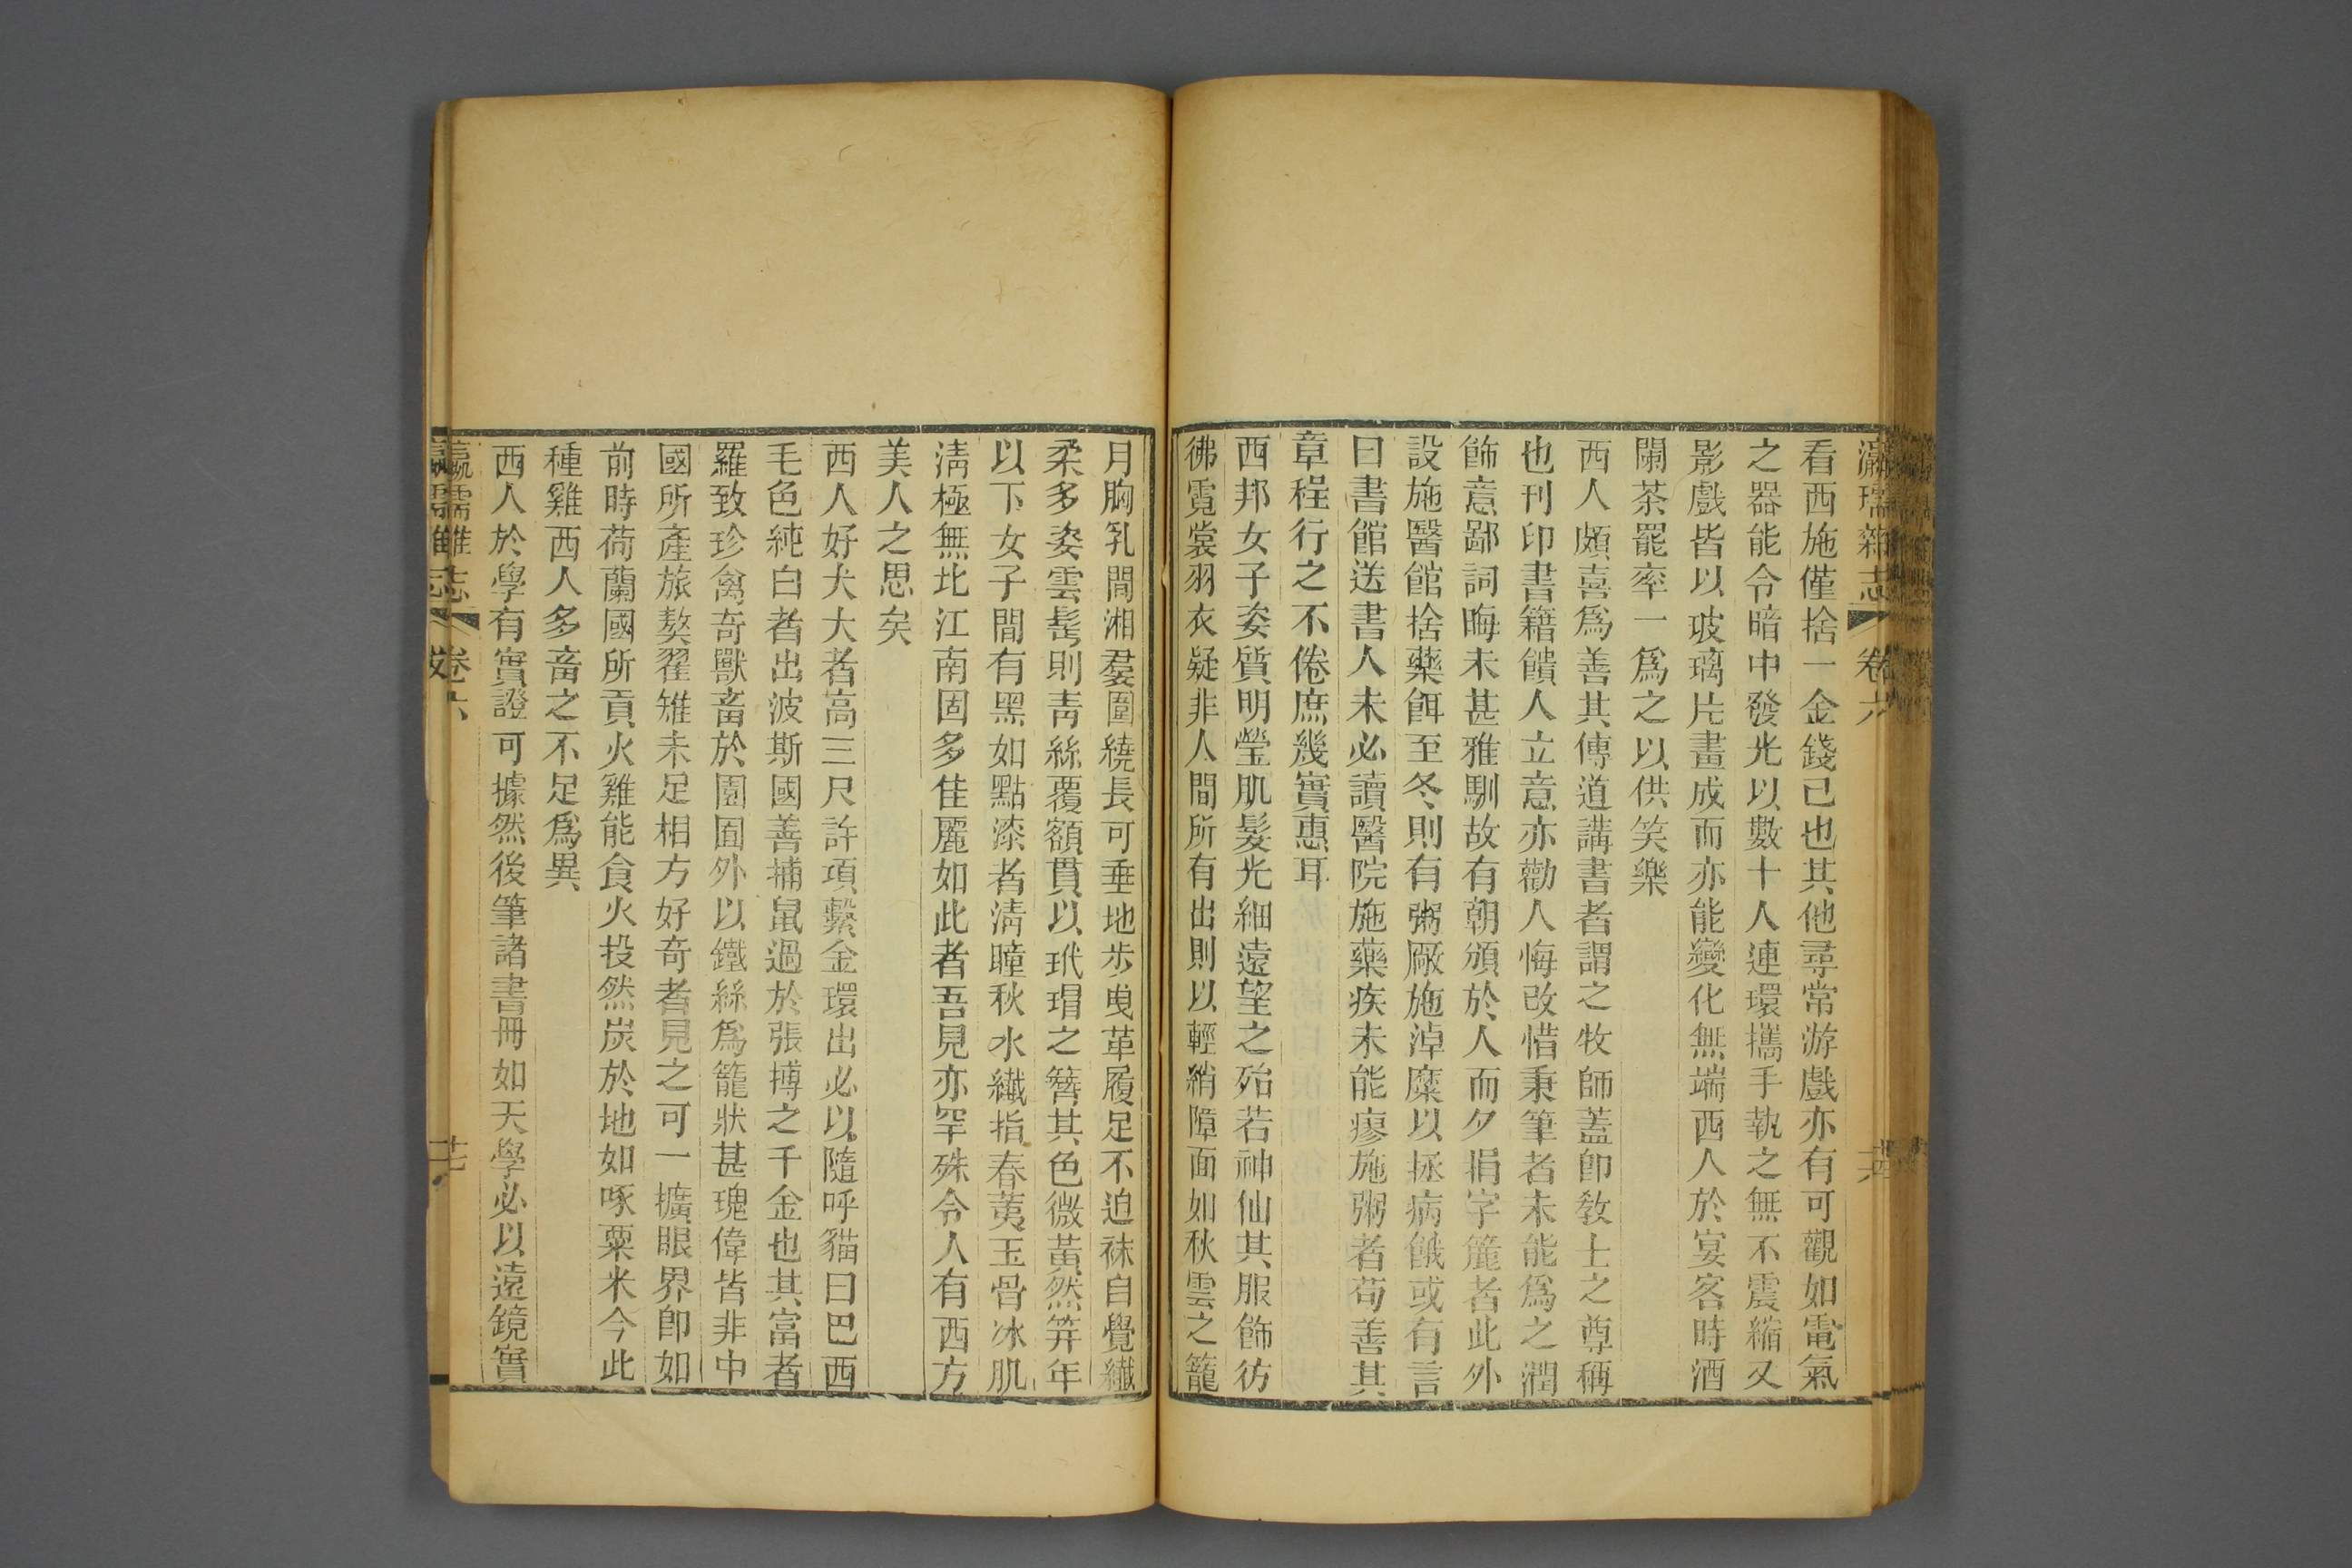 瀛壖雜志 卷六
看西施僅捨一金錢已也其他尋常游戲亦有可觀如電氣
之器能令暗中發光以數十人連環攜手執之無不震縮又
影戲皆以玻璃片畫成而亦能變化無端西人於宴客時酒
闌茶罷率一爲之以供笑樂
西人頗喜爲善其傳道講書者謂之牧師蓋卽敎士之尊稱
也刊印書籍饋人立意亦勸人悔改惜秉筆者未能爲之潤
飾意鄙詞晦未甚雅馴故有朝頒於人而夕捐字簏者此外
設施醫館捨藥餌至冬則有粥厰施淖糜以拯病餓或有言
曰書館送書人未必讀醫院施藥疾未能瘳施粥者苟善其
章程行之不倦庶幾實惠耳
西邦女子姿質明瑩肌髮光細遠望之殆若神仙其服飾彷
彿霓裳羽衣疑非人間所有出則以輕綃障面如秋雲之籠
月胸乳間湘羣圍繞長可垂地步曳革履足不迫袜自覺纖
柔多姿雲髩則靑絲覆額貫以玳瑁之簪其色微黃然笄年
以下女子間有黑如點漆者淸瞳秋水纖指春荑玉骨冰肌
淸極無比江南固多佳麗如此者吾見亦罕殊令人有西方
美人之思矣
西人好犬大者高三尺許項繫金環出必以隨呼貓曰巴西
毛色純白者出波斯國善捕鼠過於張摶之千金也其富者
羅致珍禽奇獸畜於園囿外以鐵絲爲籠狀甚瑰偉皆非中
國所產旅獒翟雉未足相方好奇者見之可一擴眼界卽如
前時荷蘭國所貢火雞能食火投然炭於地如啄粟米今此
種雞西人多畜之不足爲異
西人於學有實證可據然後筆諸書冊如天學必以遠鏡實
瀛壖雜志 卷六